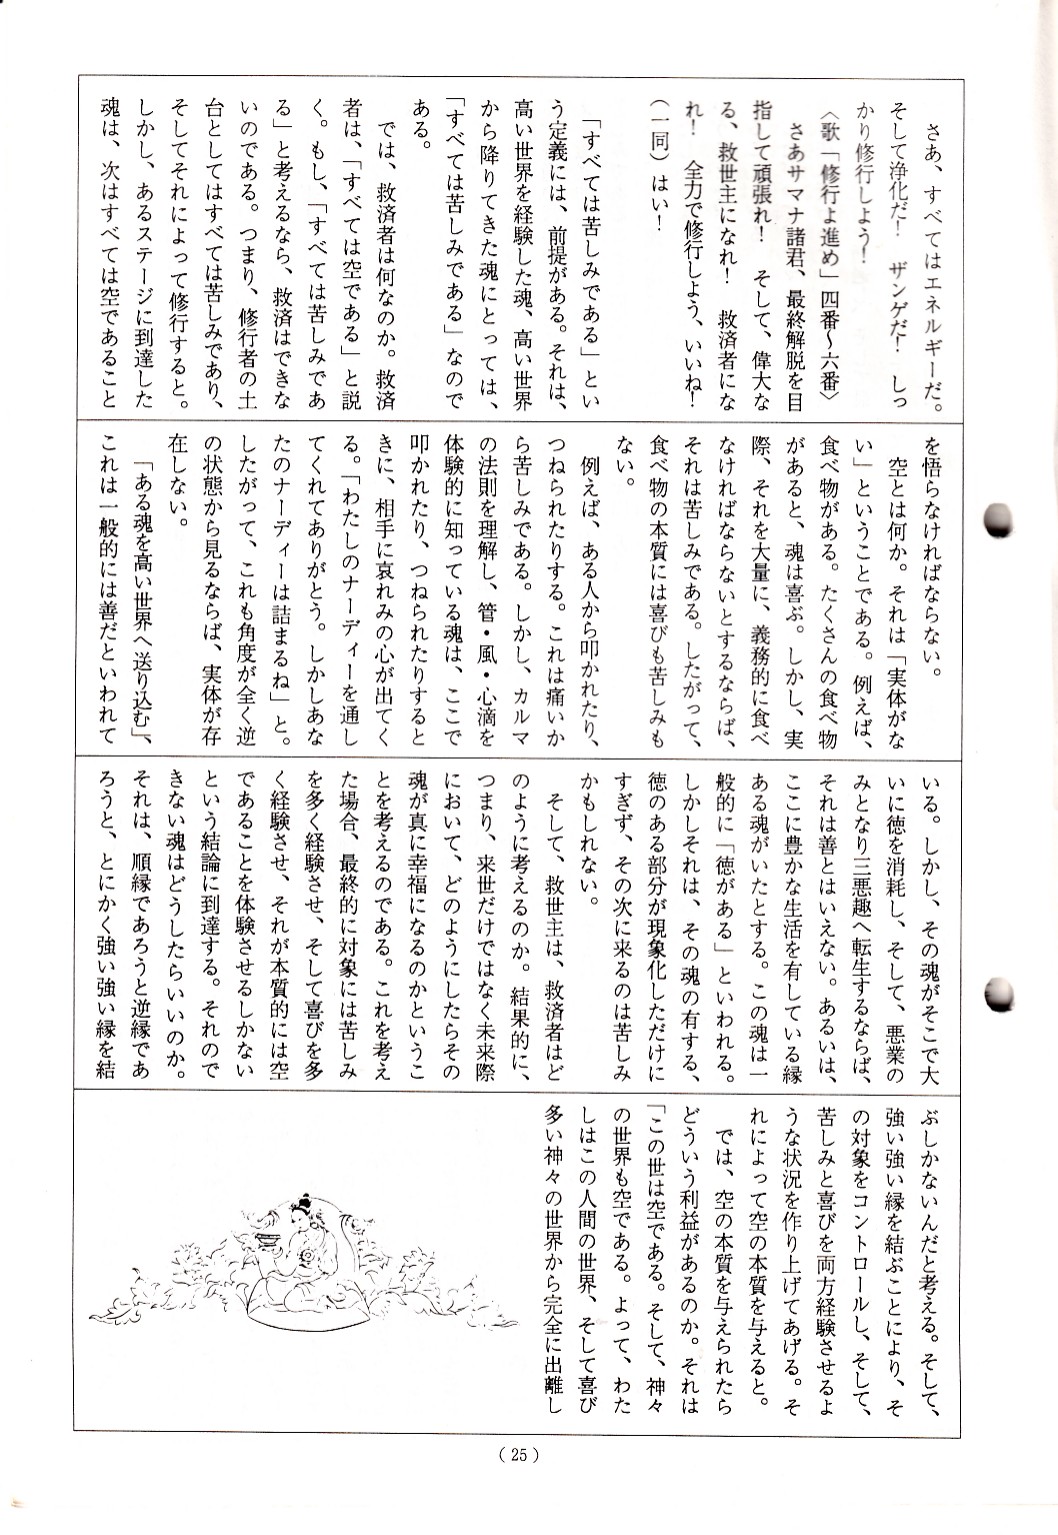 さあ、すべてはエネルギーだ。
そして浄化だ！　ザンゲだ！　しっ
かり修行しよう！
〈歌「修行よ進め」四番～六番〉
さあサマナ諸君、最終解脱を目
指して頑張れ！　そして、偉大な
る、救世主になれ！　救済者にな
れ！　全力で修行しよう、いいね！
（一同）はい！
「すべては苦しみである」とい
う定義には、前提がある。それは、
高い世界を経験した魂、高い世界
から降りてきた魂にとっては、
「すべては苦しみである」なので
ある。
では、救済者は何なのか。救済
者は、「すべては空である」と説
く。もし、「すべては苦しみであ
る」と考えるなら、救済はできな
いのである。つまり、修行者の土
台としてはすべては苦しみであり、
そしてそれによって修行すると。
しかし、あるステージに到達した
魂は、次はすべては空であること
を悟らなければならない。
空とは何か。それは「実体がな
い」ということである。例えば、
食べ物がある。たくさんの食べ物
があると、魂は喜ぶ。しかし、実
際、それを大量に、義務的に食べ
なければならないとするならば、
それは苦しみである。したがって、
食べ物の本質には喜びも苦しみも
ない。
例えば、ある人から叩かれたり、
つねられたりする。これは痛いか
ら苦しみである。しかし、カルマ
の法則を理解し、管・風・心滴を
体験的に知っている魂は、ここで
叩かれたり、つねられたりすると
きに、相手に哀れみの心が出てく
る。「わたしのナーディーを通し
てくれてありがとう。しかしあな
たのナーディーは詰まるね」と。
したがって、これも角度が全く逆
の状態から見るならば、実体が存
在しない。
「ある魂を高い世界へ送り込む」、
これは一般的には善だといわれて
いる。しかし、その魂がそこで大
いに徳を消耗し、そして、悪業の
みとなり三悪趣へ転生するならば、
それは善とはいえない。あるいは、
ここに豊かな生活を有している縁
ある魂がいたとする。この魂は一
般的に「徳がある」といわれる。
しかしそれは、その魂の有する、
徳のある部分が現象化しただけに
すぎず、その次に来るのは苦しみ
かもしれない。
そして、救世主は、救済者はど
のように考えるのか。結果的に、
つまり、来世だけではなく未来際
において、どのようにしたらその
魂が真に幸福になるのかというこ
とを考えるのである。これを考え
た場合、最終的に対象には苦しみ
を多く経験させ、そして喜びを多
く経験させ、それが本質的には空
であることを体験させるしかない
という結論に到達する。それので
きない魂はどうしたらいいのか。
それは、順縁であろうと逆縁であ
ろうと、とにかく強い強い縁を結
ぶしかないんだと考える。そして、
強い強い縁を結ぶことにより、そ
の対象をコントロールし、そして、
苦しみと喜びを両方経験させるよ
うな状況を作り上げてあげる。そ
れによって空の本質を与えると。
では、空の本質を与えられたら
どういう利益があるのか。それは
「この世は空である。そして、神々
の世界も空である。よって、わた
しはこの人間の世界、そして喜び
多い神々の世界から完全に出離し
（25）